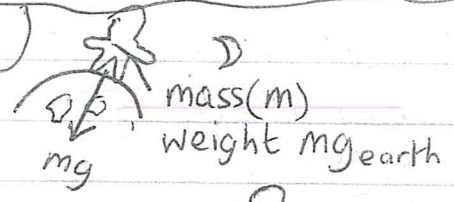 mass(m)
weight mg earth
mg